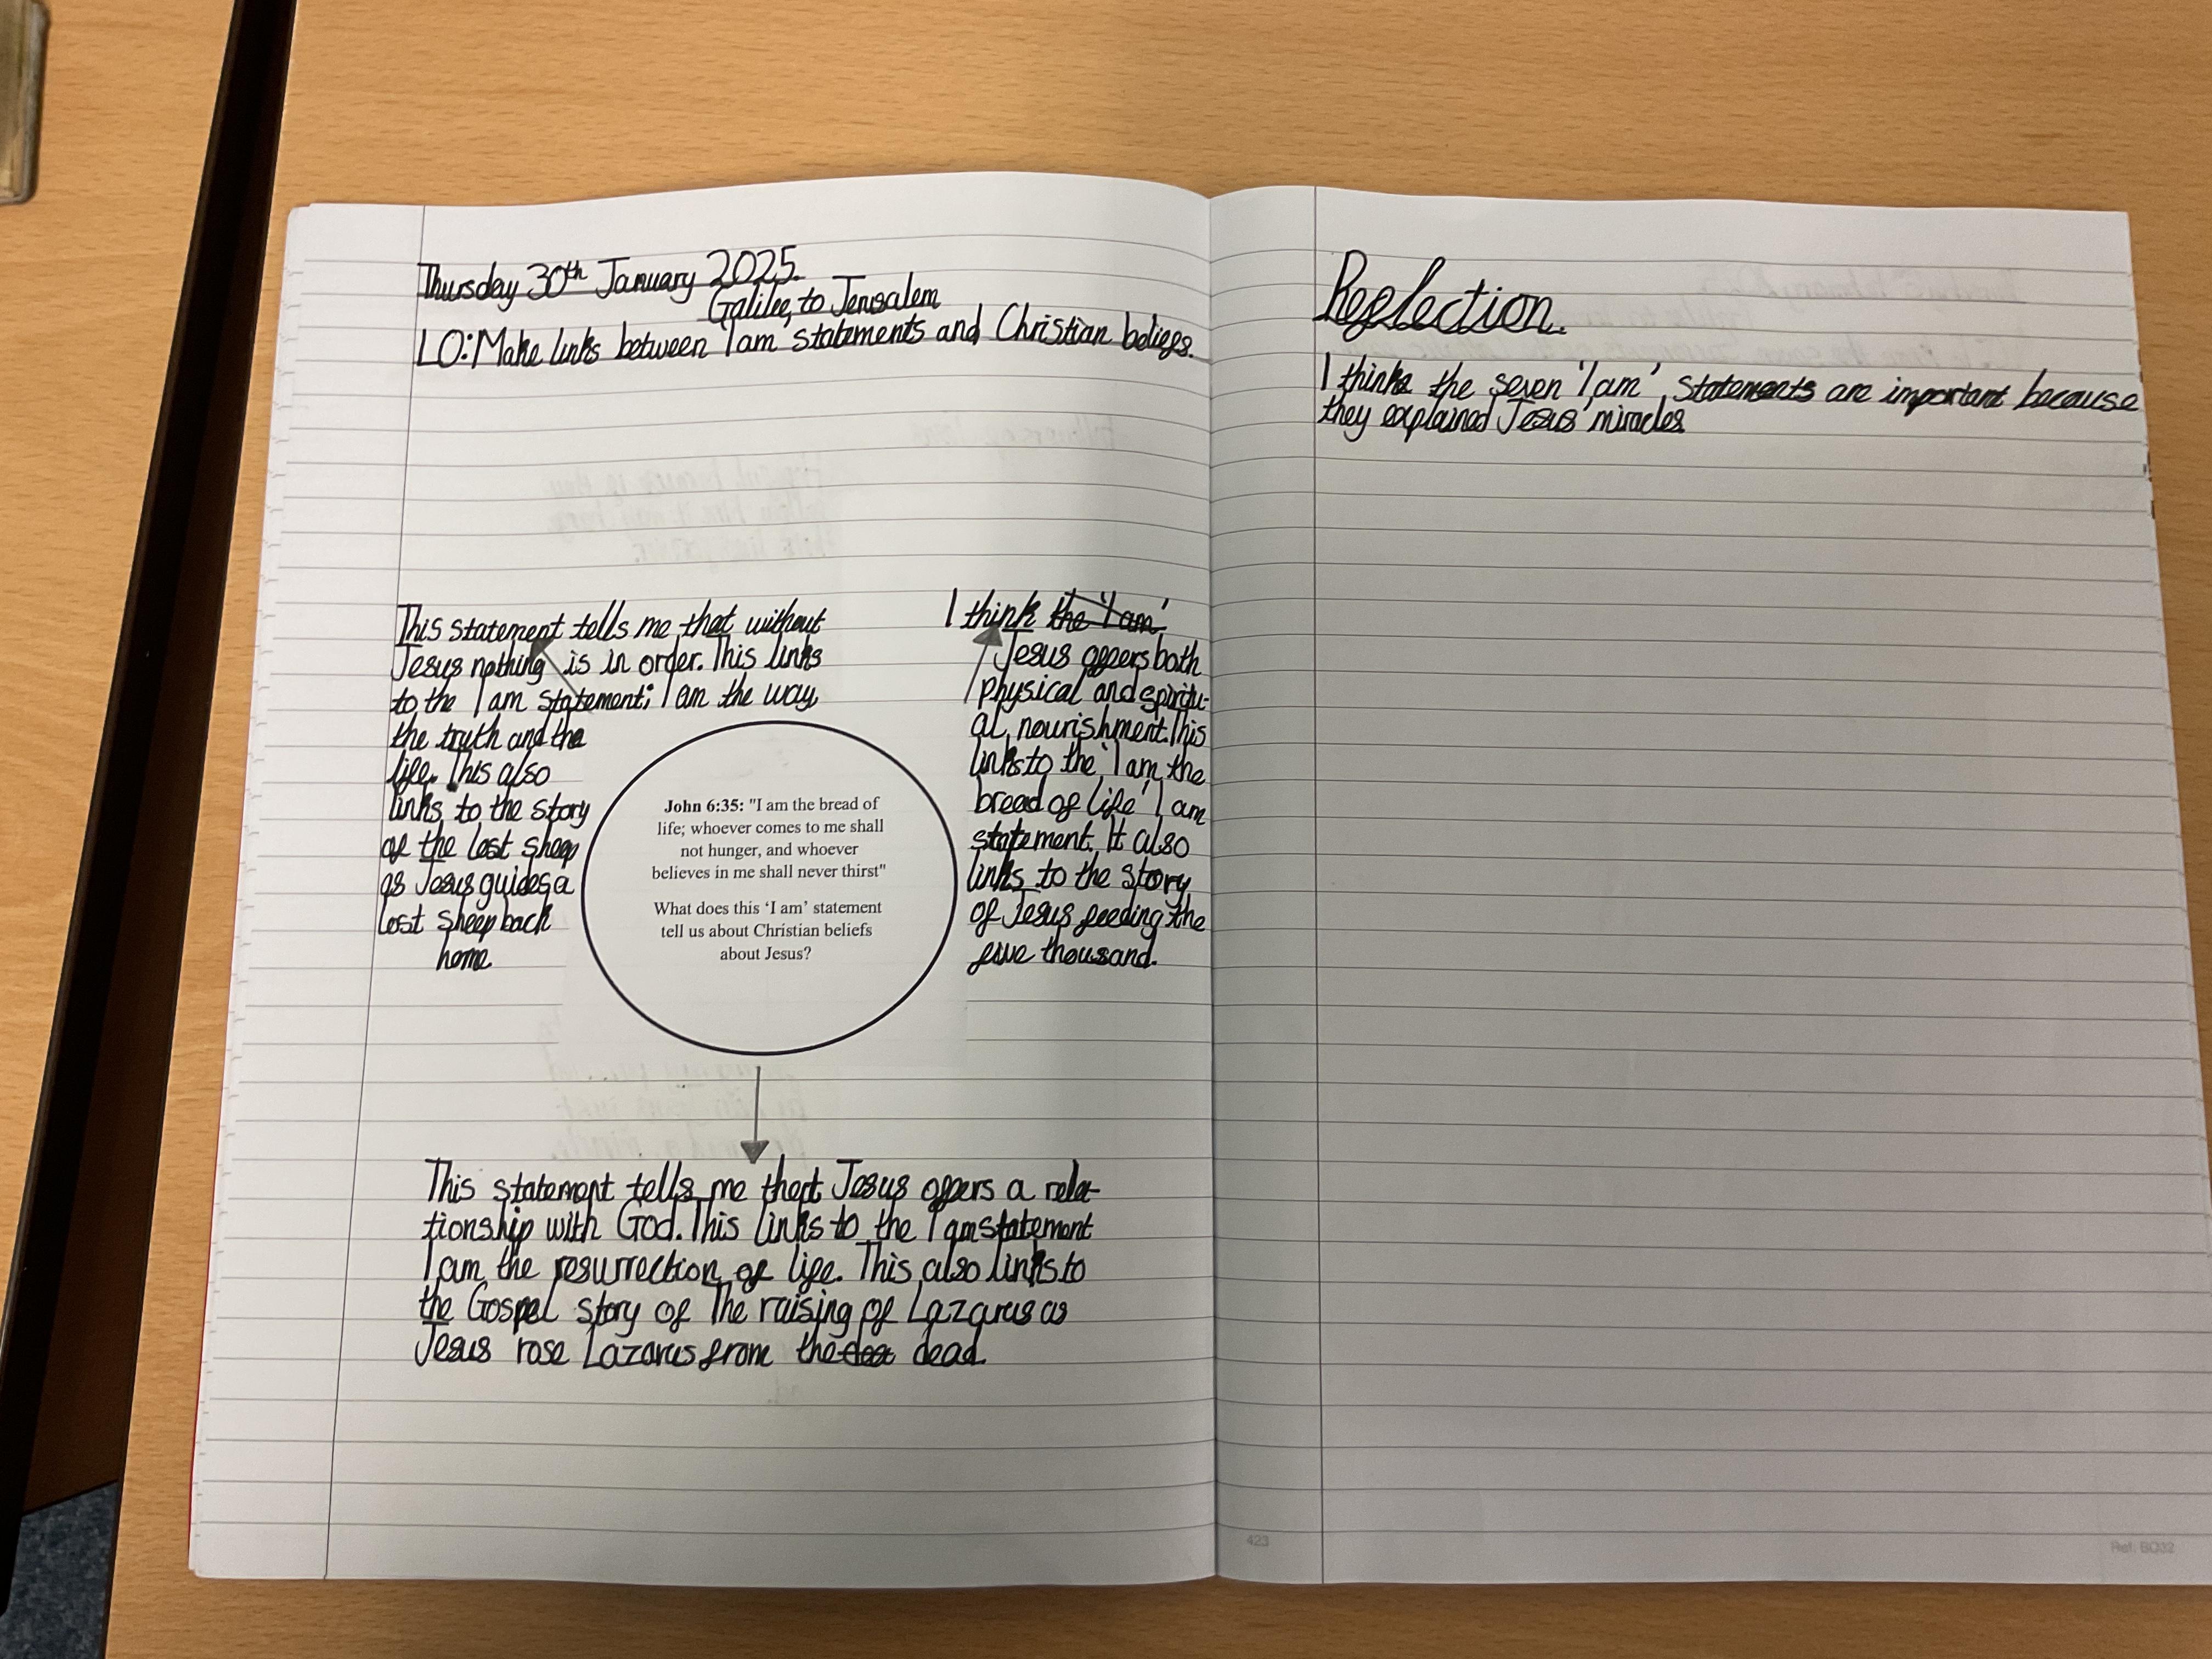 Thursday 30th January 2025.
Galilee to Jerusalem
LO: Make links between 'I am' statements and Christian beliefs.
This statement tells me that without
Jesus nothing is in order. This links
to the I am statement; I am the way,
the truth and the
life. This also
links to the story
of the lost sheep
as Jesus guides a
lost sheep back
home.
I think the 'I am'
Jesus offers both
physical and spiritu-
al nourishment. This
links to the 'I am the
bread of life' I am
statement. It also
links to the story
of Jesus feeding the
five thousand.
John 6:35: "I am the bread of
life; whoever comes to me shall
not hunger, and whoever
believes in me shall never thirst"
What does this ‘I am’ statement
tell us about Christian beliefs
about Jesus?
This statement tells me that Jesus offers a rela-
tionship with God. This links to the I am statement
I am the resurrection of life. This also links to
the Gospel story of The raising of Lazarus as
Jesus rose Lazarus from the dea dead.
Reflection.
I think the seven 'I am' statements are important because
they explained Jesus' miracles
423
Ref: BO32